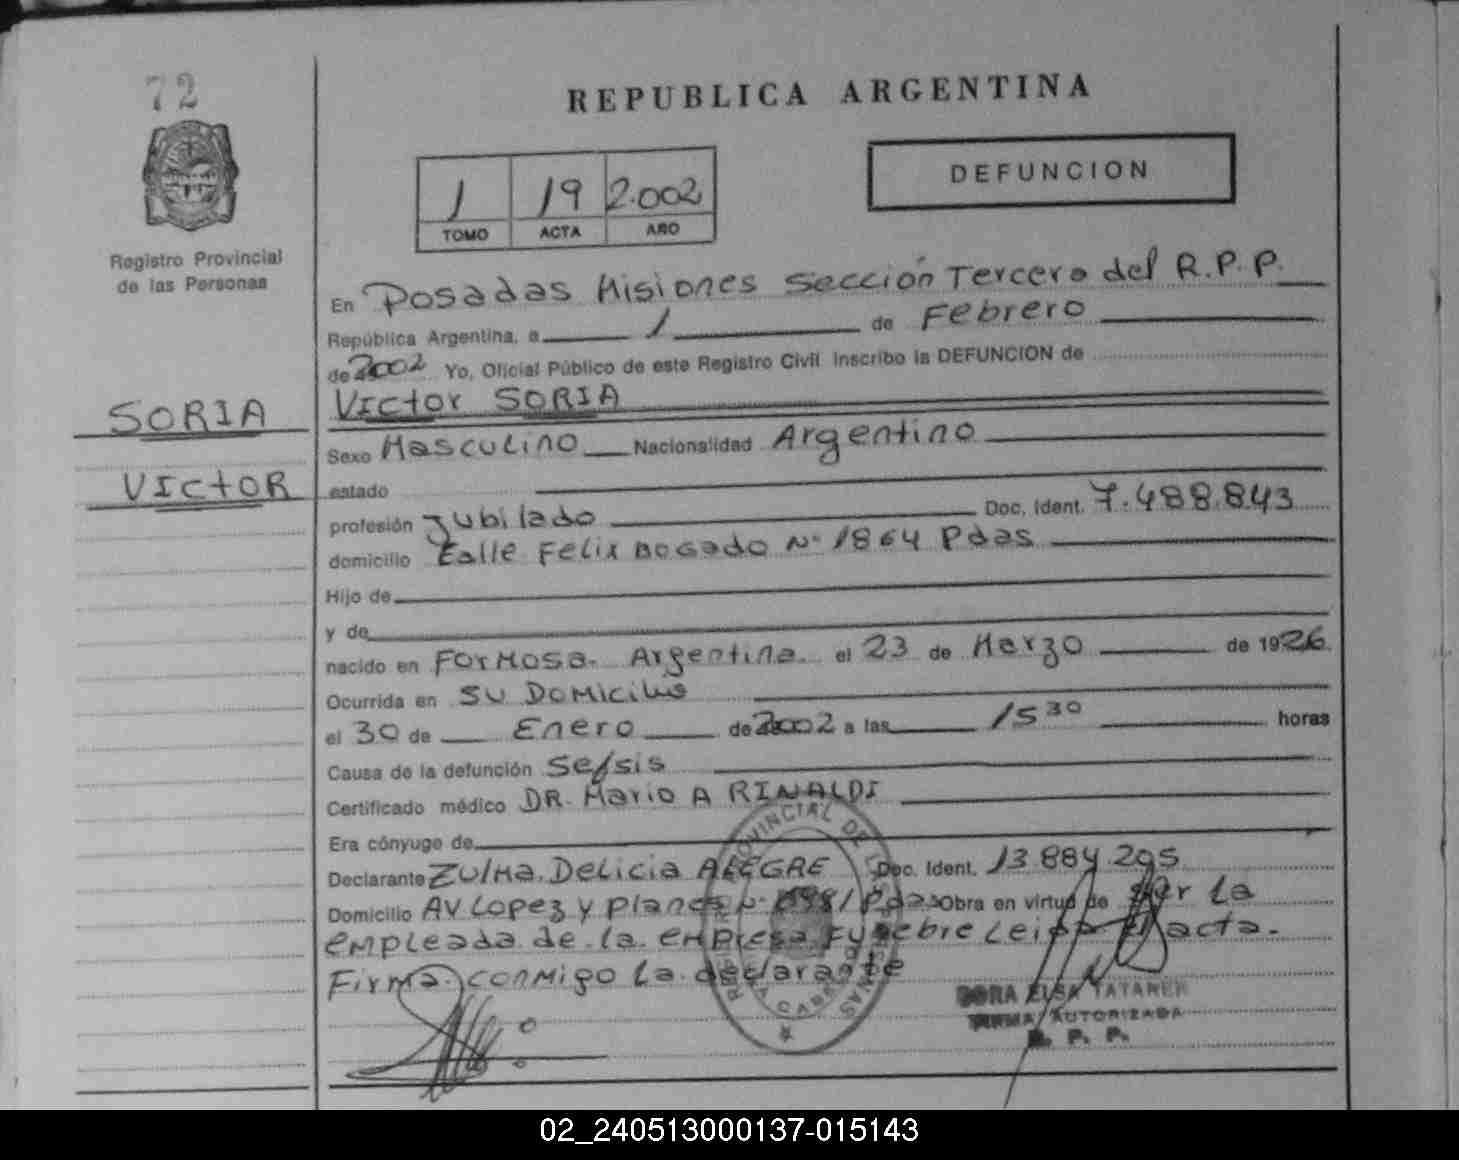 72
REPUBLICA ARGENTINA
DEFUNCION
1 19 2.002
TOMO ACTA AÑO
Registro Provincial
de las Personas
En Posadas Misiones Sección Tercera del R.P.P.
República Argentina, a 1 de Febrero
de 2002 Yo, Oficial Público de este Registro Civil inscribo la DEFUNCION de
SORIA
Victor SORIA
Sexo Masculino Nacionalidad Argentino
VICTOR
estado
profesión Jubilado Doc. Ident. 7.488.843
domicilio Calle Felix Bogado N° 1864 Pdas
Hijo de
y de
nacido en Formosa. Argentina. el 23 de Marzo de 1926
Ocurrida en su Domicilio
el 30 de Enero de 2002 a las 15 30 horas
Causa de la defunción Sefsis
Certificado médico DR. Mario A RINALDI
Era cónyuge de
Declarante Zulma. Delicia ALEGRE Doc. Ident. 13.884.295
Domicilio AV Lopez y Planes N° Pdas Obra en virtud de ser la
empleada de la empresa Funebre acta.
Firma conmigo la declarante
DORA ELSA TATAREN
FIRMA AUTORIZADA
R. P. P.
02_240513000137-015143